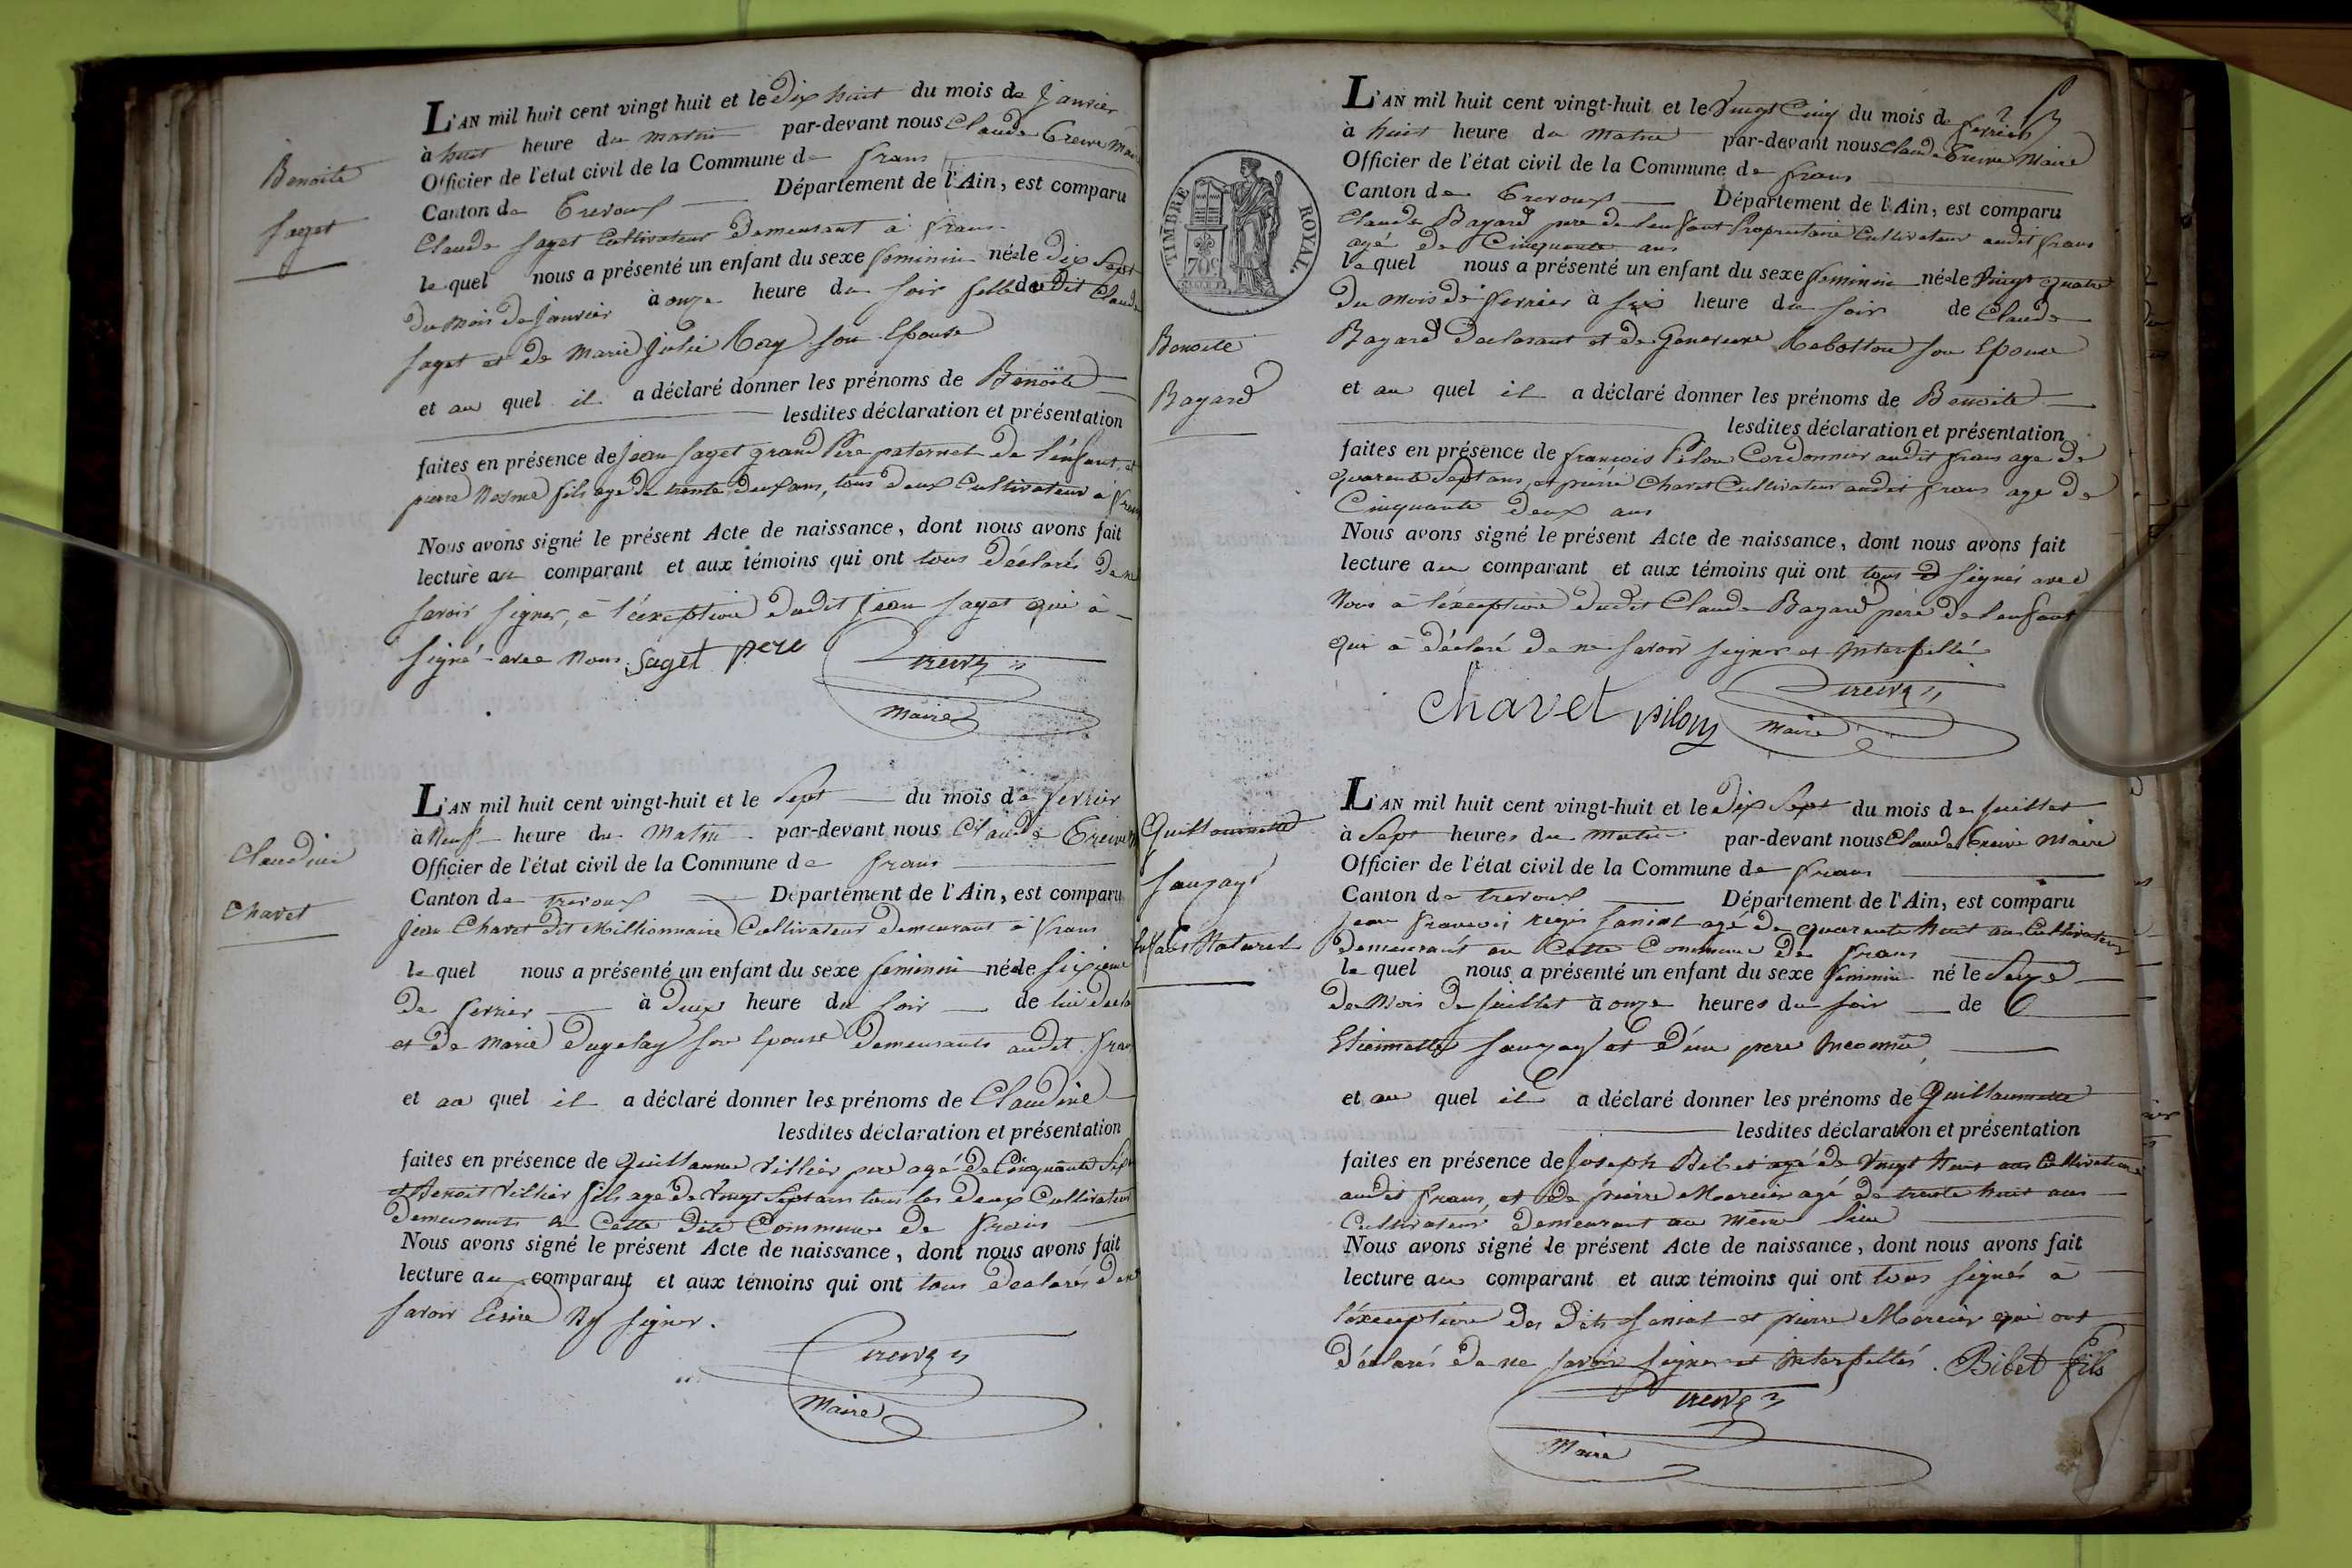 Benoite
Saget
L'AN mil huit cent vingt huit et le Dix huit du mois de Janvier
à huit heure du matin par-devant nous Claude Treive Maire
Officier de l'état civil de la Commune de frans
Canton de Trevoux Département de l'Ain, est comparu
Claude Saget Cultivateur Demeurant à frans
le quel nous a présenté un enfant du sexe feminin né le dix Sept
Du Mois De Janvier à onze heure du soir fille de dudit Claude
Saget et de Marie Julie Rey son Epouse
et au quel il a déclaré donner les prénoms de Benoite
lesdites déclaration et présentation
faites en présence de Jean Saget grand Père paternel de l'enfant, et
pierre Nesme fils agé de trente deux ans, tous deux Cultivateur à frans
Nous avons signé le présent Acte de naissance, dont nous avons fait
lecture au comparant et aux témoins qui ont tous déclarés de ne
savoir signer, à l'exception dudit Jean Saget qui à
signé avec Nous. Saget pere Treive
Maire
Claudine
Chavet
L'AN mil huit cent vingt-huit et le Sept du mois de fevrier
à Neuf heure du Matin par-devant nous Claude Treive
Officier de l'état civil de la Commune de frans
Canton de trevoux Département de l'Ain, est comparu
Jean Chavet dit Millionnaire Cultivateur Demeurant à frans
le quel nous a présenté un enfant du sexe feminin né le sixieme
de fevrier à deux heure du soir de lui
et de Marie Dugelay son Epouse Demeurants audit frans
et au quel il a déclaré donner les prénoms de Claudine
lesdites déclaration et présentation
faites en présence de Guillaume Villier pere agé de Cinquante Sept
et Benoit Villier fils agé de Vingt Sept ans tous les deux Cultivateur
Demeurants en Cette dite Commune de frans
Nous avons signé le présent Acte de naissance, dont nous avons fait
lecture au comparant et aux témoins qui ont tous déclarés de ne
savoir Ecrire Ny signer.
Treive
Maire
TIMBRE ROYAL
70c
Benoite
Bayard
L'AN mil huit cent vingt-huit et le Vingt Cinq du mois de fevrier
à huit heure du Matin par-devant nous Claude Treive Maire
Officier de l'état civil de la Commune de frans
Canton de Trevoux Département de l'Ain, est comparu
Claude Bayard pere de l'enfant Proprietaire Cultivateur audit frans
agé de Cinquante ans
le quel nous a présenté un enfant du sexe feminin né le Vingt quatre
du mois de fevrier à six heure du soir de Claude
Bayard Declarant et de Genevieve Rebotton son Epouse
et au quel il a déclaré donner les prénoms de Benoite
lesdites déclaration et présentation
faites en présence de françois Pilon Cordonnier audit frans age de
quarente Sept ans, et pierre Chavet Cultivateur audit frans age de
Cinquante deux ans
Nous avons signé le présent Acte de naissance, dont nous avons fait
lecture au comparant et aux témoins qui ont tous signés avec
Nous à l'exception dudit Claude Bayard père de l'enfant
qui à déclaré de ne savoir signer et Interpellé.
Chavet pilon Treive
Maire
Guillaumette
Sauzay
Enfant Naturel
L'AN mil huit cent vingt-huit et le Dix Sept du mois de Juillet
à Sept heures du matin par-devant nous Claude Treive Maire
Officier de l'état civil de la Commune de frans
Canton de trevoux Département de l'Ain, est comparu
Jean françois Regis Janiat agé de quarente huit ans Cultivateur
demeurant en Cette Commune de frans
le quel nous a présenté un enfant du sexe feminin né le Seize
du Mois de Juillet à onze heures du soir de
Etiennette Sauzay et d'un pere Inconnu
et au quel il a déclaré donner les prénoms de Guillaumette
lesdites déclaration et présentation
faites en présence de Joseph Bibet agé de Vingt huit ans Cultivateur
audit frans, et de pierre Mercier agé de trente huit ans
Cultivateur demeurant au même lieu
Nous avons signé le présent Acte de naissance, dont nous avons fait
lecture au comparant et aux témoins qui ont tous signés à
l'exception des dits Janiat et pierre Mercier qui ont
déclarés de ne savoir signer et Interpellés. Bibet fils
Treive
Maire